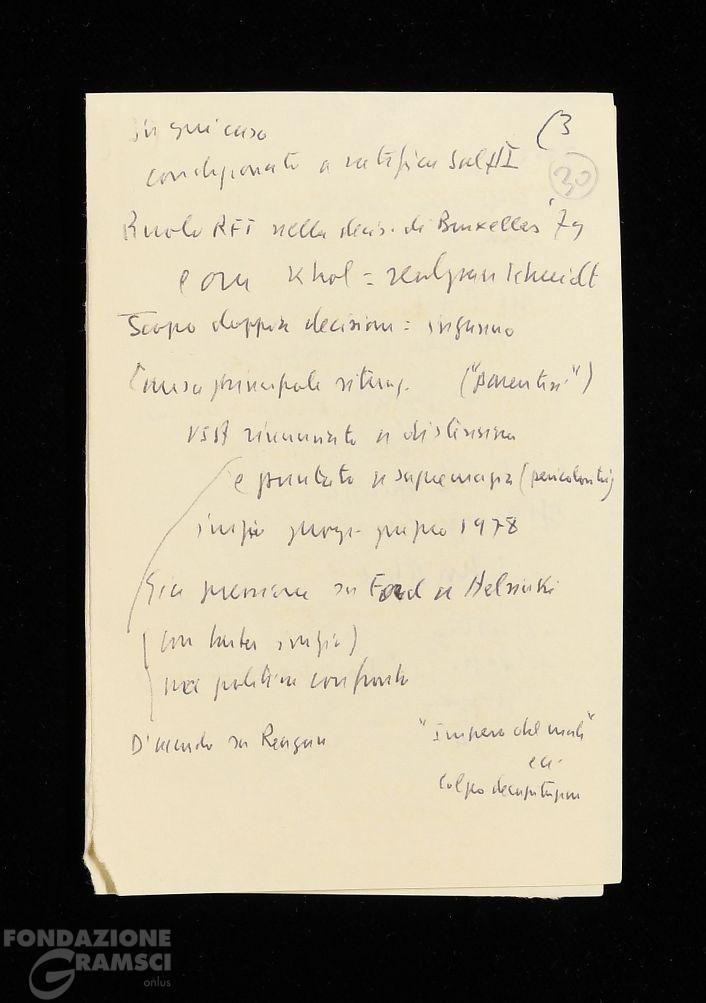 (3
in qui caso
condizionato a ratifica Salt II
30
Ruolo RFT nella decis. di Bruxelles '79
e ora Khol = Schmidt
Scopo doppia decisione = inganno
Causa principale ("parentesi")
USA rinunciato a distensione
e puntato a supremazia (pericolosità)
inizio 1978
Già pressione su Ford a Helsinki
(con Carter inizia)
una politica confronto
D'accordo su Reagan "Impero del male"
ecc.
colpo decapitazione
FONDAZIONE
GRAMSCI
onlus